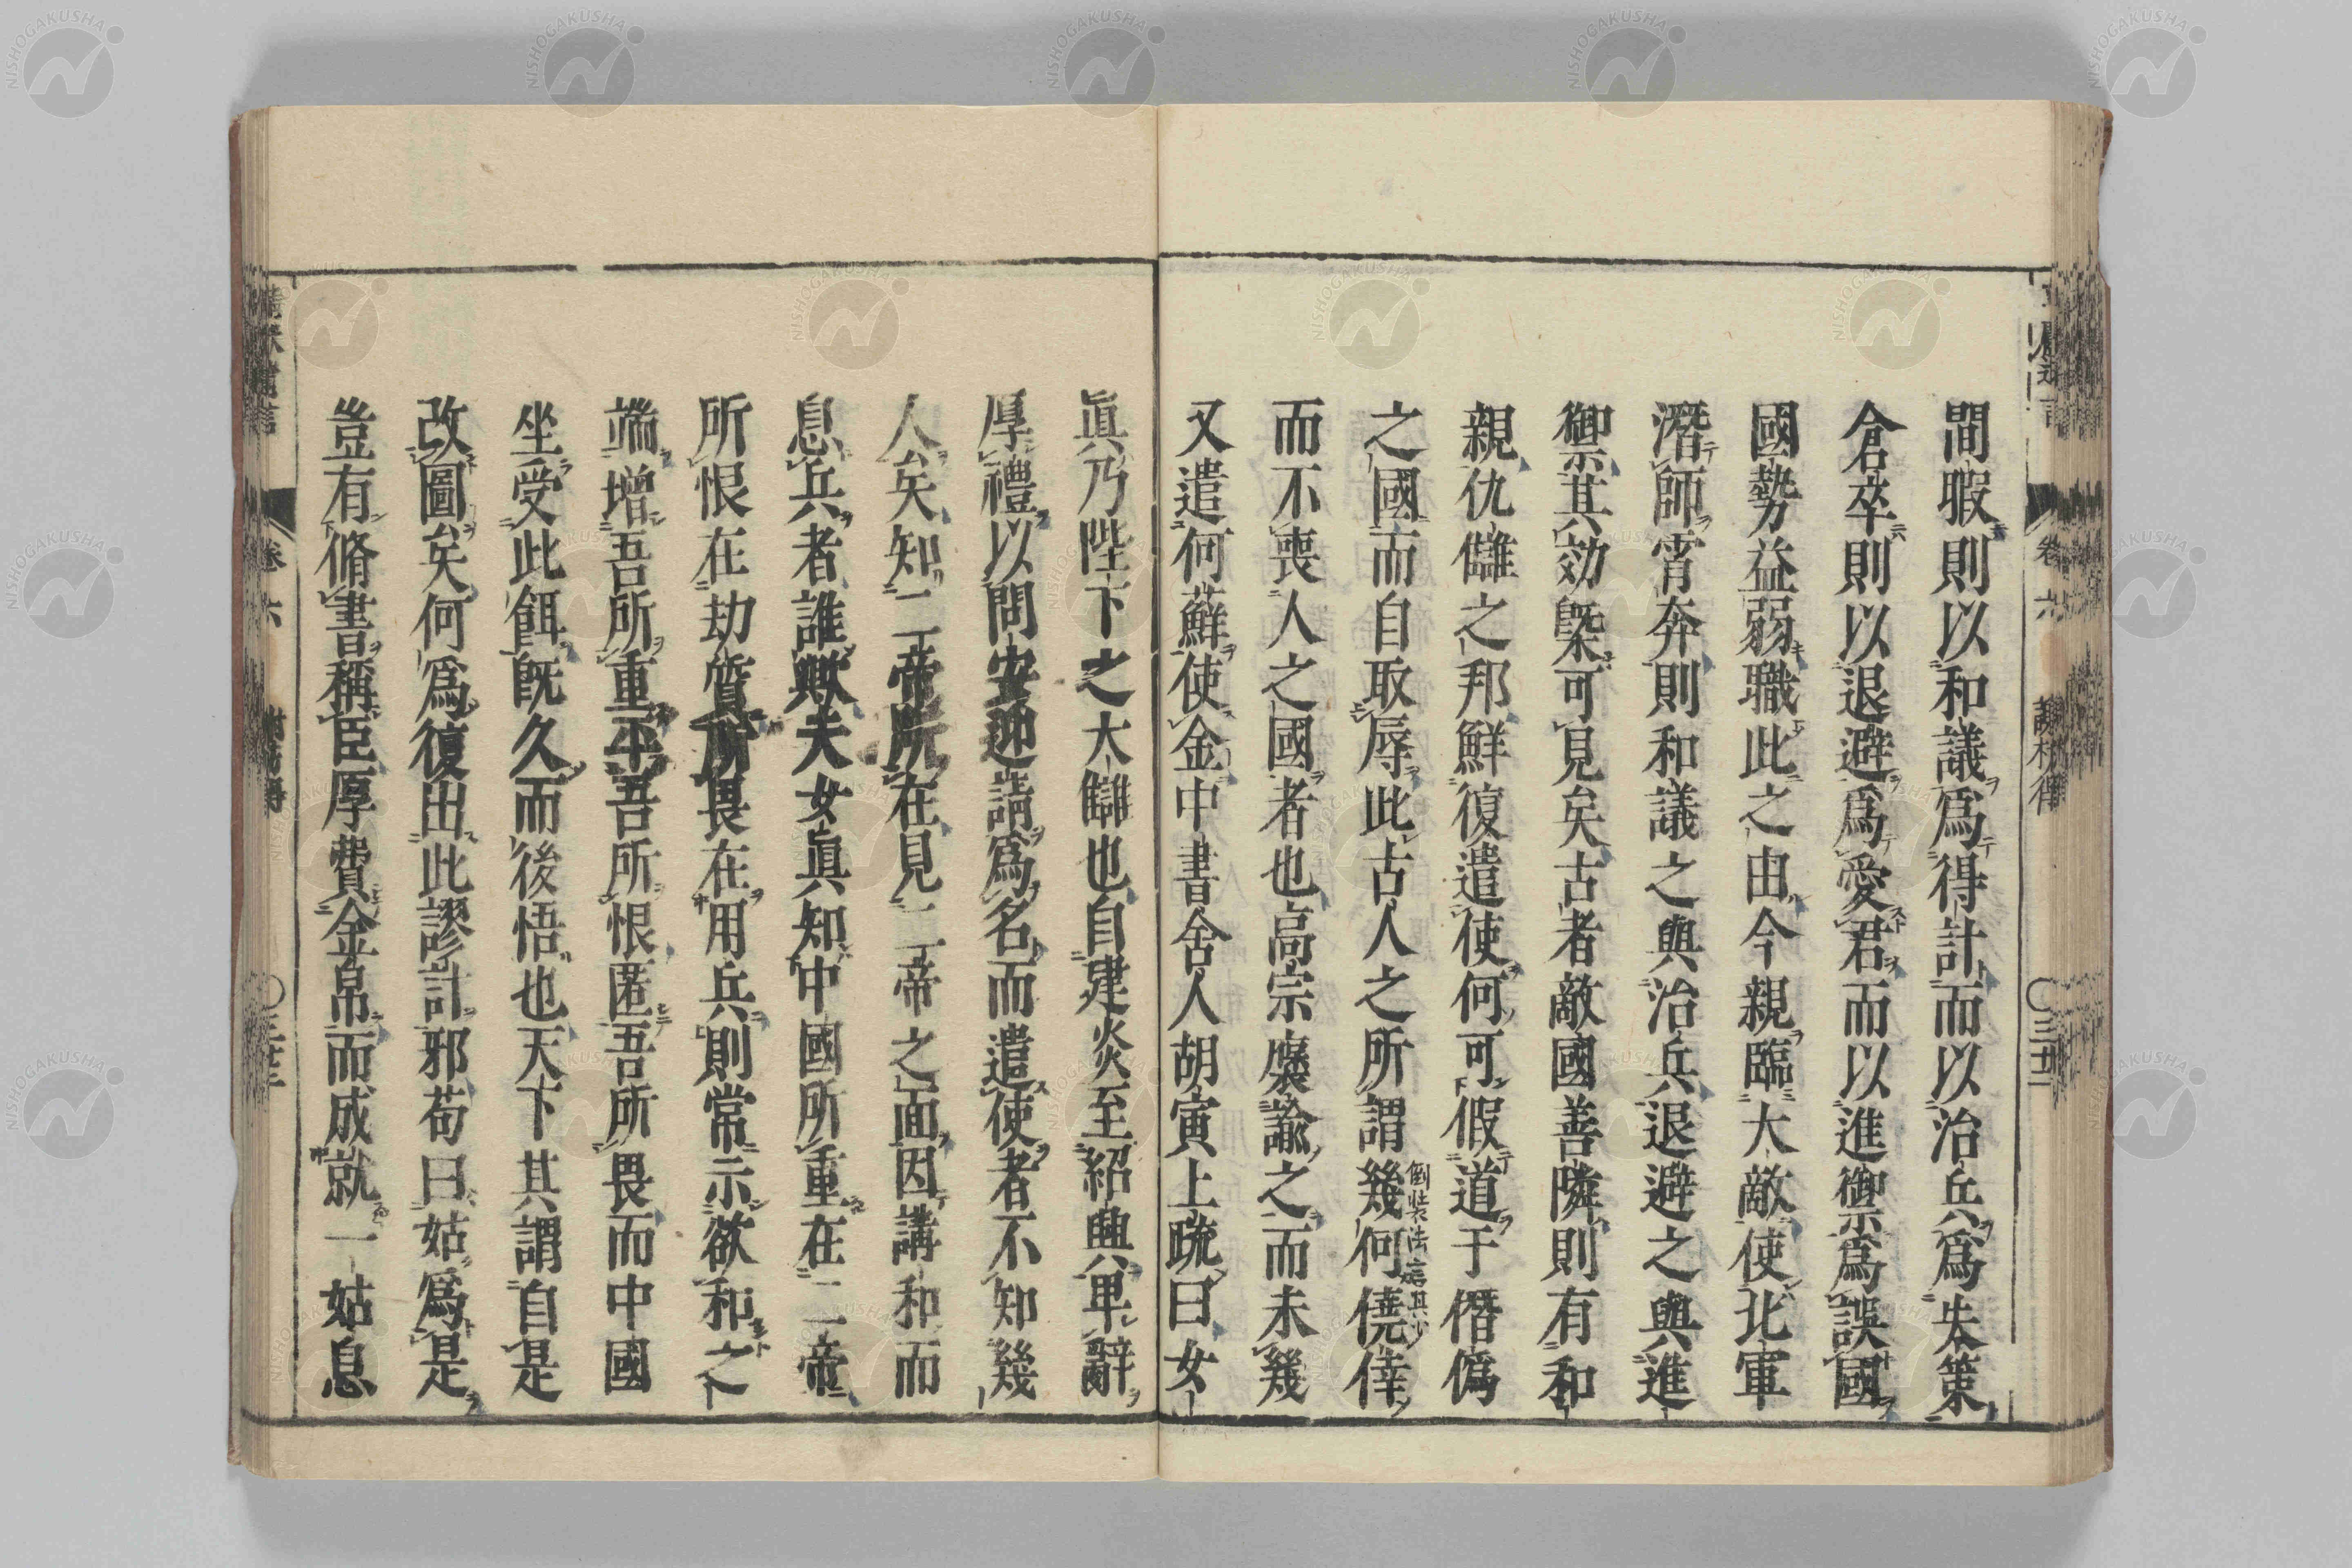 間暇則以和議爲得計而以治兵爲失策
倉卒則以退避爲愛君而以進禦爲誤國
國勢益弱職此之由今親臨大敵使北軍
潛師宵奔則和議之與治兵退避之與進
禦其効槩可見矣古者敵國善隣則有和
親仇讎之邦鮮復遣使何可假道于僭僞
之國而自取辱此古人之所謂幾何僥倖
倒裝法
而不喪人之國者也高宗襃諭之而未幾
又遣何蘚使金中書舍人胡寅上疏曰女
眞乃陛下之大讎也自建炎至紹興卑辭
厚禮以問安迎請爲名而遣使者不知幾
人矣知二帝所在見二帝之面因講和而
息兵者誰歟夫女眞知中國所重在二帝
所恨在劫質所畏在用兵則常示欲和之
端增吾所重平吾所恨匿吾所畏而中國
坐受此餌旣久而後悟也天下其謂自是
改圖矣何爲復出此謬計邪苟曰姑爲是
豈有脩書稱臣厚費金帛而成就一姑息
卷六
卷六